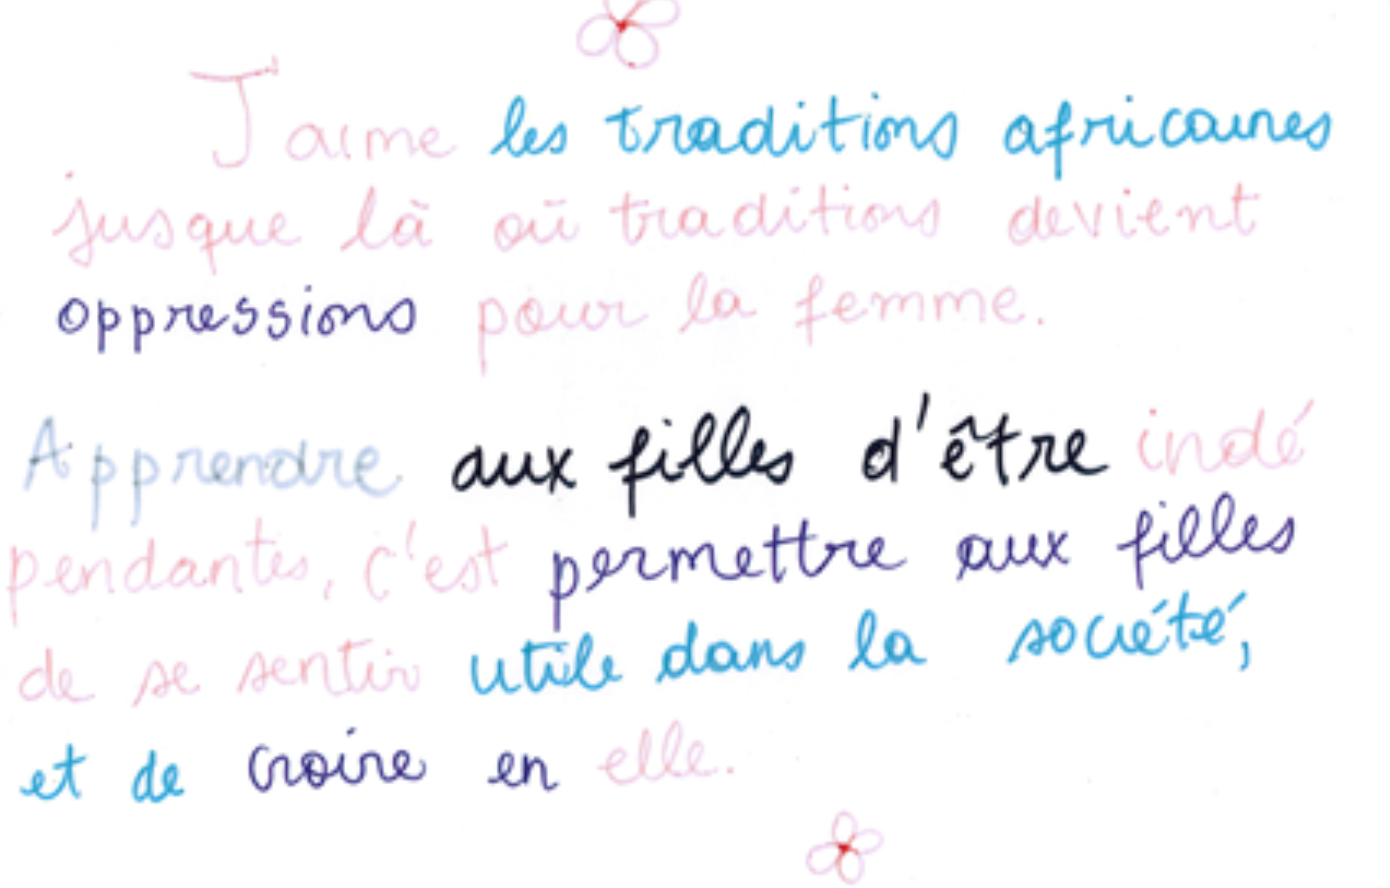 J'aime les traditions africaines
jusque là où traditions devient
oppressions pour la femme.
Apprendre aux filles d'être indé
pendantes, c'est permettre aux filles
de se sentir utile dans la société,
et de croire en elle.